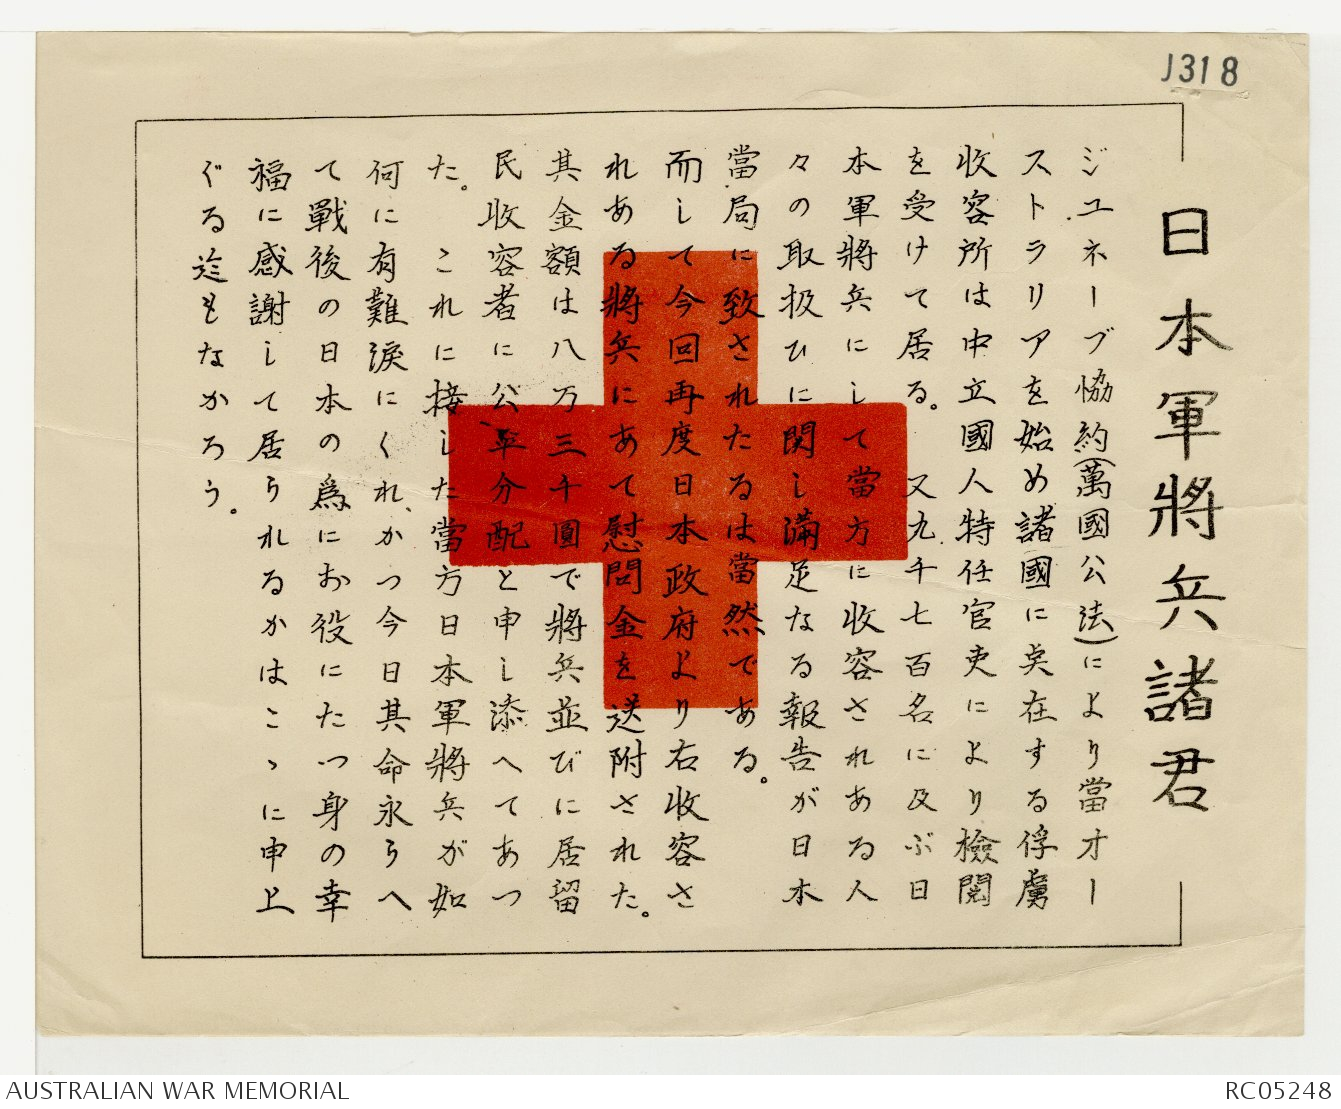 J318
日本軍將兵諸君
ジユネーブ恊約(萬國公法)により當オー
ストラリアを始め諸國に矣在する俘虜
收容所は中立國人特任官吏により檢閲
を受けて居る。又九千七百名に及ぶ日
本軍將兵にして當方に收容されある人
々の取扱ひに関し滿足なる報告が日本
當局に致されたるは當然である。
而して今回再度日本政府より右收容さ
れある將兵にあて慰問金を送附された。
其金額は八万三千圓で將兵並びに居留
民收容者に公平分配と申し添へてあつ
た。これに接した當方日本軍將兵が如
何に有難淚にくれ、かつ今日其命永らへ
て戰後の日本の爲にお役にたつ身の幸
福に感謝して居られるかはこゝに申上
ぐる迄もなかろう。
AUSTRALIAN WAR MEMORIAL
RC05248